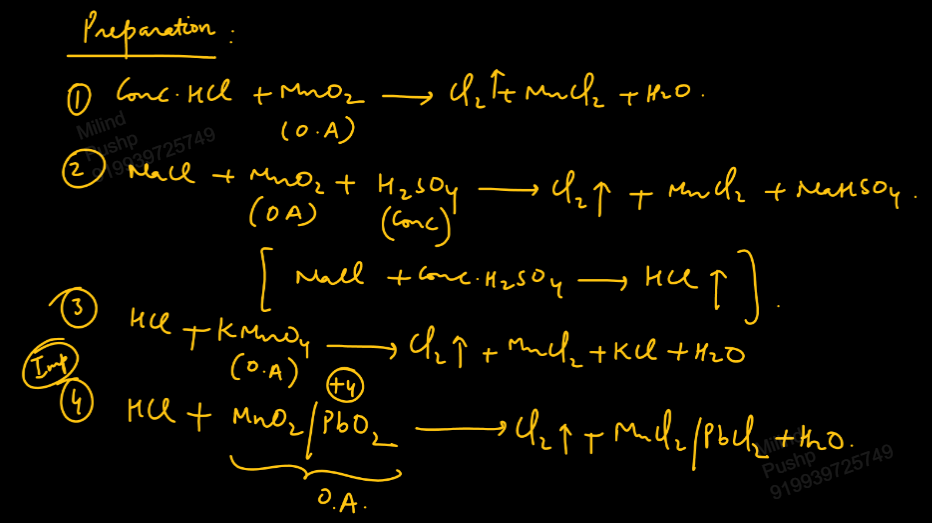 Preparation :
① Conc. HCl + MnO₂ ⟶ Cl₂↑ + MnCl₂ + H₂O.
(O.A)
Milind
Pushp
919939725749
② NaCl + MnO₂ + H₂SO₄ ⟶ Cl₂↑ + MnCl₂ + NaHSO₄.
(OA) (Conc)
[ NaCl + Conc. H₂SO₄ ⟶ HCl ↑ ].
③ HCl + KMnO₄ ⟶ Cl₂↑ + MnCl₂ + KCl + H₂O
(O.A)
Imp
+4
④ HCl + MnO₂/PbO₂ ⟶ Cl₂↑ + MnCl₂/PbCl₂ + H₂O.
O.A.
Milind
Pushp
919939725749